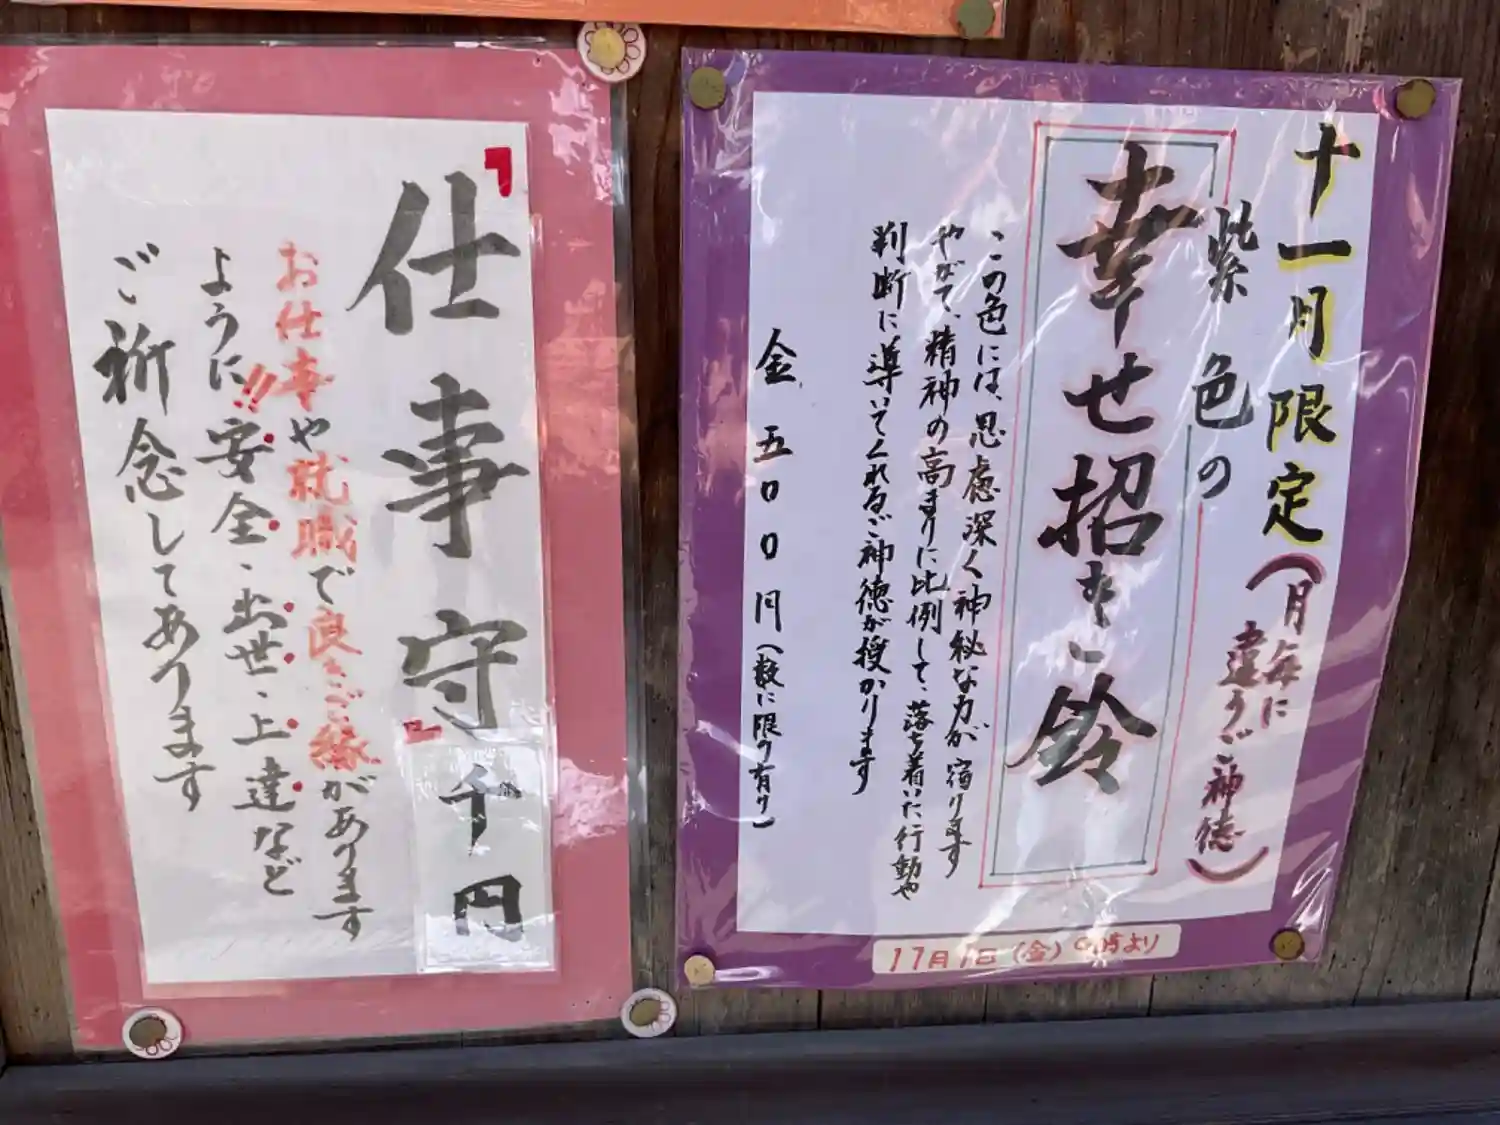 十一月限定(月毎に
違うご神徳)
紫色の
幸せ招き鈴
この色には、思慮深く神秘な力が宿ります
やがて、精神の高まりに比例して、落ち着いた行動や
判断に導いてくれるご神徳が授かります
金五〇〇円(数に限り有り)
11月1日(金)9時より
「仕事守」
千円
お仕事や就職で良きご縁があります
ように!!安全、出世、上達など
ご祈念してあります